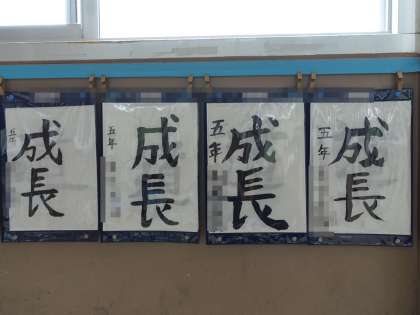 五年
成長
五年
成長
五年
成長
五年
成長